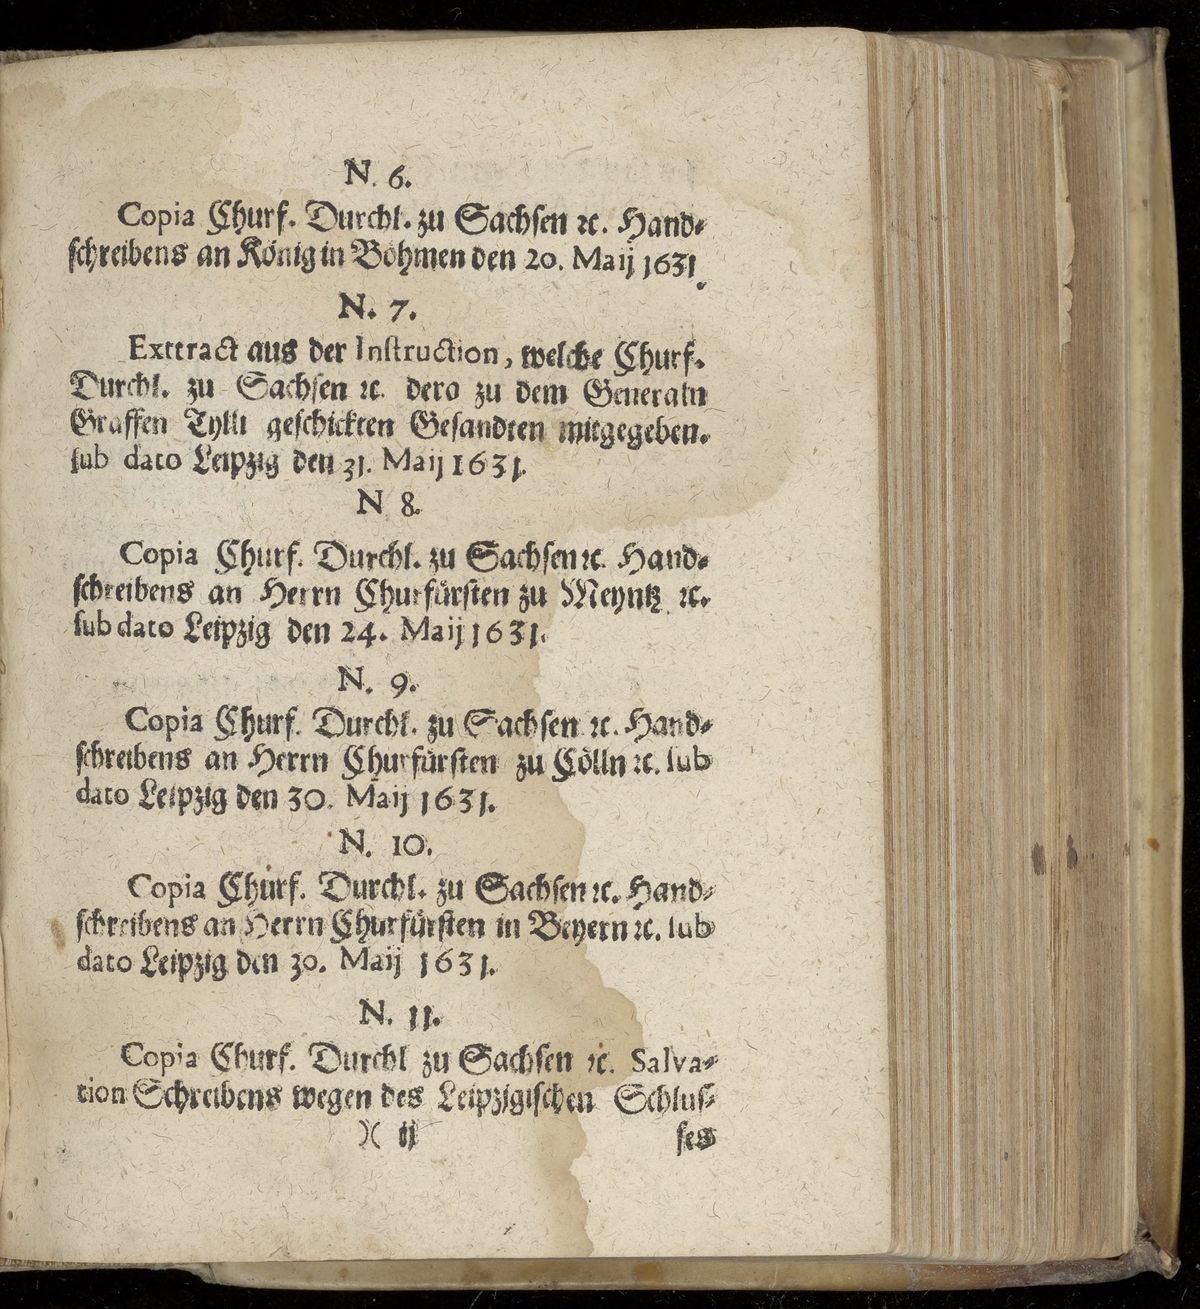 N. 6.
Copia Churf. Durchl. zu Sachsen ꝛc. Hand-
schreibens an König in Böhmen den 20. Maij 1631.
N. 7.
Exttract aus der Instruction, welche Churf.
Durchl. zu Sachsen ꝛc. dero zu dem Generaln
Graffen Tylli geschickten Gesandten mitgegeben.
sub dato Leipzig den 31. Maij 1631.
N 8.
Copia Churf. Durchl. zu Sachsen ꝛc. Hand-
schreibens an Herrn Churfürsten zu Meyntz ꝛc.
sub dato Leipzig den 24. Maij 1631.
N. 9.
Copia Churf. Durchl. zu Sachsen ꝛc. Hand-
schreibens an Herrn Churfürsten zu Cölln ꝛc. sub
dato Leipzig den 30. Maij 1631.
N. 10.
Copia Churf. Durchl. zu Sachsen ꝛc. Hand-
schreibens an Herrn Churfürsten in Beyern ꝛc. sub
dato Leipzig den 30. Maij 1631.
N. 11.
Copia Churf. Durchl zu Sachsen ꝛc. Salva-
tion Schreibens wegen des Leipzigischen Schlus-
)( ij
ses